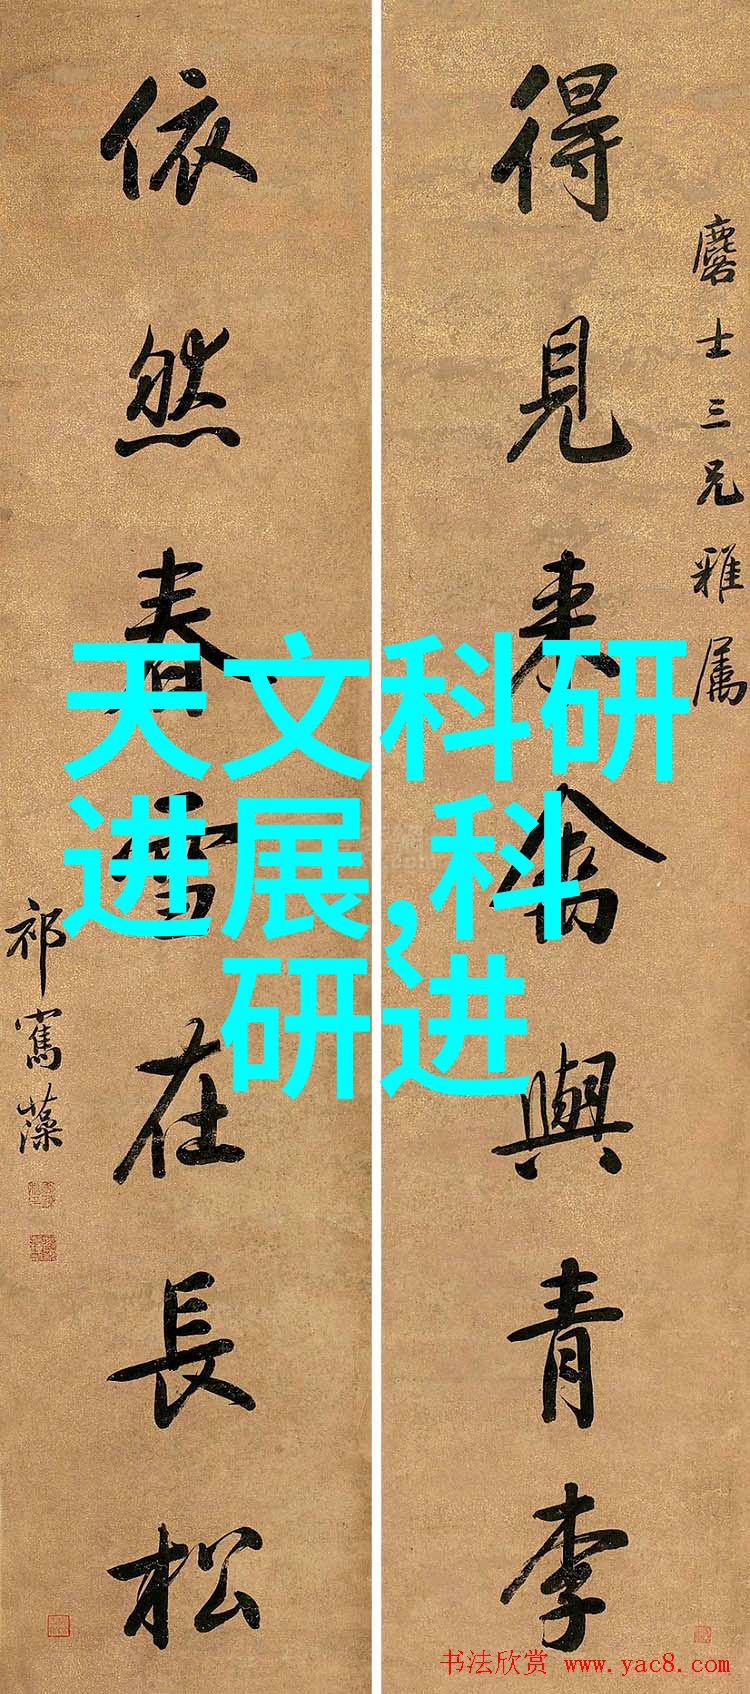 得見来禽與青李
麐士三兄雅属
依然春雪在長松
祁寯藻
天文科研
进展,科
研进
书法欣赏 www.yac8.com